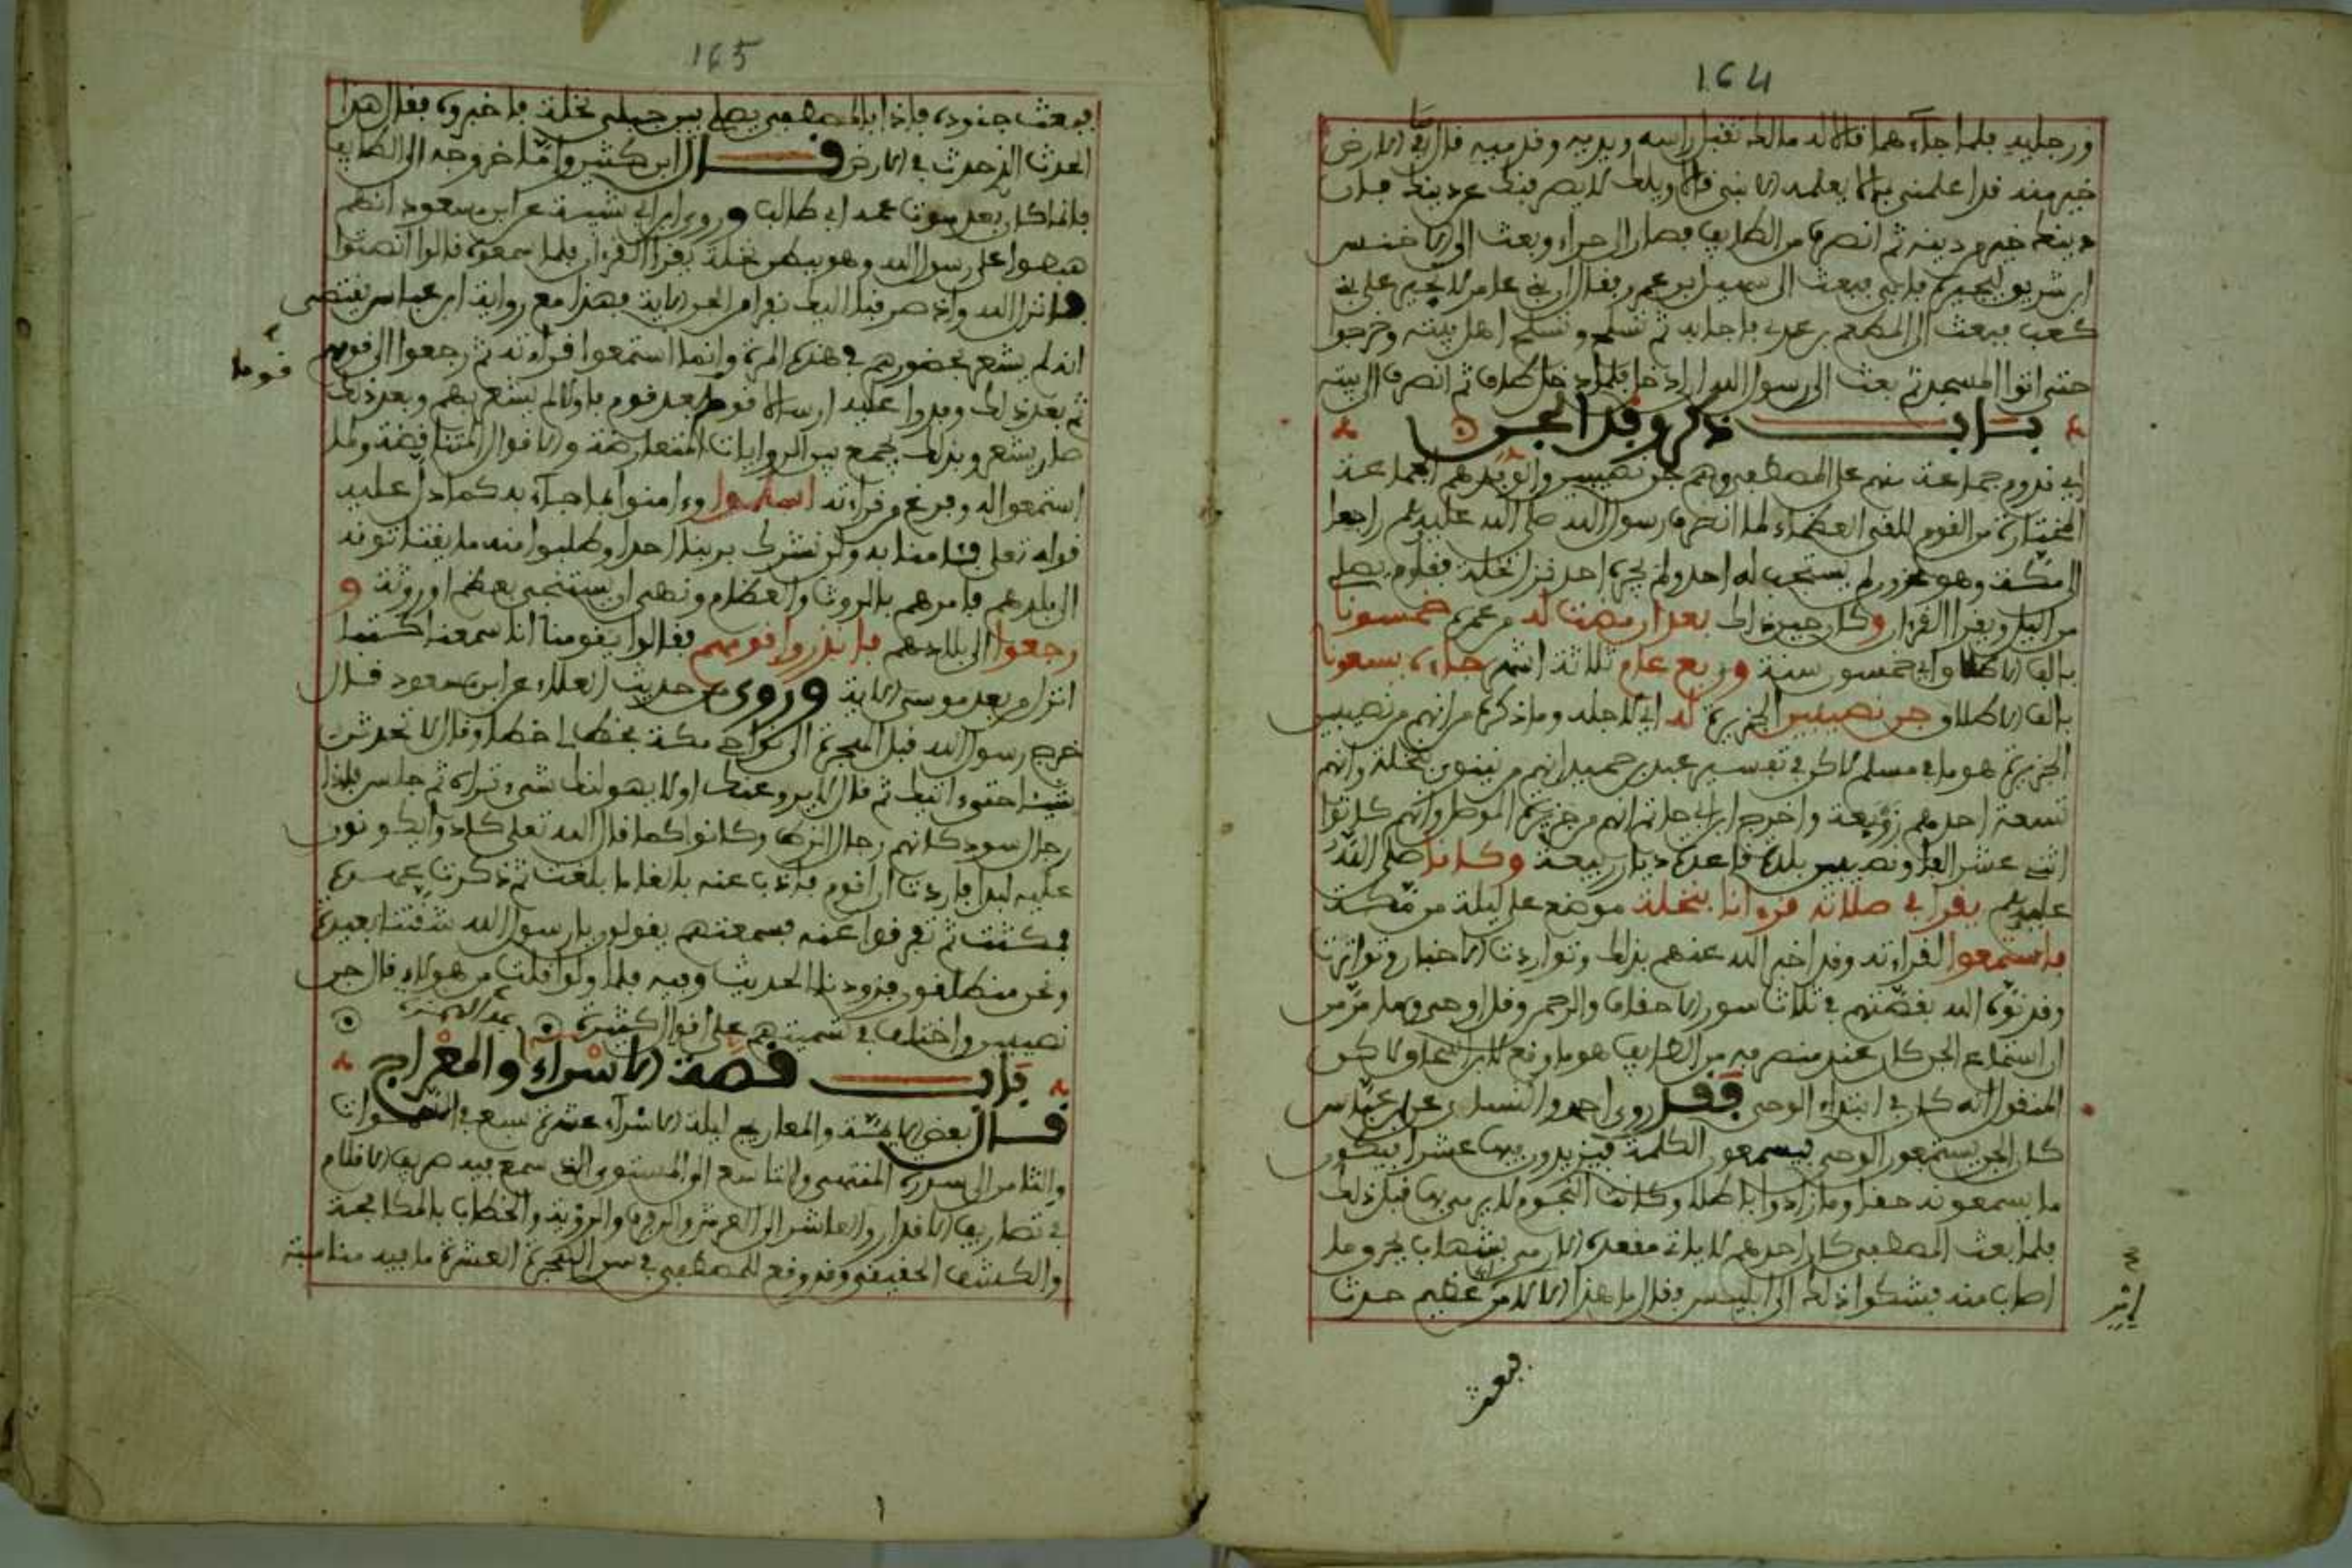 164
ورجليه فلما جاءهما قالا له مالك تقبل راسه ويديه وقدميه قال ما في الارض
خير منه قد اعلمني بما لا يعلمه الا نبي قالا ويلك لا يصرفنك عن دينك فان
دينك خير من دينه ثم انصرف من الطايف فصار الى حراء وبعث الى الاخنس
ابن شريق ليجيره فابى فبعث الى سهيل بن عمرو فقال ان بني عامر لا تجير على بني
كعب فبعث الى المطعم بن عدي فاجابه ثم تسلح وتسلح اهل بيته وخرجوا
حتى اتوا المسجد ثم بعث الى رسول الله ان ادخل فلما دخل طاف ثم انصرف الى بيته
باب ذكر وفد الجن
اي قدوم جماعة منهم على المصطفى وهم جن نصيبين والوفد هم الجماعة
المختارة من القوم للقى العظماء لما انصرف رسول الله صلى الله عليه وسلم راجعا
الى مكة وهو محزون لم يستجب له احد ولم يجره احد نزل نخلة فقام يصلي
من اليل ويقرا القرءان وكان حين ذلك بعد ان مضت له من عمره خمسونا
بالف الاطلاق اي خمسون سنة وربع عام ثلاثة اشهر جاءه يسعونا
بالف الاطلاق جن نصيبين الجزيرة له اي لاجله وما ذكره من انهم من نصيبين
الجزيرة هو ما في مسلم لاكن في تفسير عبد بن حميد انهم من نينوى بنخلة وانهم
تسعة احدهم زوبعة واخرج ابن ابي حاتم انهم من جزيرة الموصل وانهم كانوا
اثني عشر الفا ونصيبين بلدة قاعدة ديار ربيعة وكانا صلى الله
عليه وسلم يقرا في صلاته قروانا بنخلة موضع على ليلة من مكة
فاستمعوا لقراءته وقد اخبر الله عنهم بذلك وتواردت الاخبار وتواترت
وقد نوه الله بقصتهم في ثلاث سور الاحقاف والرحمن وقل اوحي وما مر من
ان استماع الجن كان عند منصرفه من الطايف هو ما وقع لابن اسحاق لاكن
المنقول انه كان في ابتداء الوحي فقد روى احمد والنساءي عن ابن عباس
كان الجن يستمعون الوحي فيسمعون الكلمة فيزيدون فيها عشرا فيكون
ما يسمعونه حقا وما زادوا باطلا وكانت النجوم لا يرمى بها قبل ذلك
فلما بعث المصطفى كان احدهم لا ياتي مقعده الا رمي بشهاب يحرق ما
اصاب منه فشكوا ذلك الى ابليس فقال ما هذا الا لامر عظيم حدث
فبعث
165
فبعث جنوده فاذا بالمصطفى يصلي بين جبلي نخلة فاخبروه فقال هذا
الحدث الذي حدث في الارض قال ابن كثير واما خروجه الى الطايف
فانما كان بعد موت عمه ابي طالب وروى ابن ابي شيبة عن ابن مسعود انهم
هبطوا على رسول الله وهو ببطن نخلة يقرا القرءان فلما سمعوه قالوا انصتوا
فانزل الله واذ صرفنا اليك نفرا من الجن الاية فهذا مع رواية ابن عباس يقتضي
انه لم يشعر بحضورهم في هذه المرة وانما استمعوا قراءته ثم رجعوا الى قومهم
قوما
ثم بعد ذلك وفدوا عليه ارسالا قوما بعد قوم فاولا لم يشعر بهم وبعد ذلك
صار يشعر وبذلك يجمع بين الروايات المتعارضة والاقوال المتناقضة ولما
استمعوا له وفرغ من قراءته اسلموا وءامنوا بما جاء به كما دل عليه
قوله تعلى فئامنا به ولن نشرك بربنا احدا وطلبوا منه ما يقتاتونه
الى بلدهم فامرهم بالروث والعظام ونهى ان يستنجى بعظم او روثة و
رجعوا الى بلادهم فانذروا قومهم فقالوا يقومنا انا سمعنا كتبا
انزل من بعد موسى الاية وروي من حديث ابي العلاء عن ابن مسعود قال
خرج رسول الله قبل الهجرة الى نواحي مكة فخط لي خطا وقال لا تحدثن
شيئا حتى ءاتيك ثم قال لا يروعنك او لا يهولنك شيء تراه ثم جلس فاذا
رجال سود كانهم رجال الزط وكانوا كما قال الله تعلى كادوا يكونون
عليه لبدا فاردت ان اقوم فاذب عنه بالغا ما بلغت ثم ذكرت عهده
فمكثت ثم تفرقوا عنه فسمعتهم يقولون يا رسول الله شقتنا بعيدة
ونحن منطلقون فزودنا الحديث وفيه فلما ولوا قلت من هولاء قال جن
نصيبين واختلف في تسميتهم على اقوال كثيرة
باب قصة الاسراء والمعراج
قال بعض الايمة والمعاريج ليلة الاسراء عشرة سبع في السموات
والثامن الى سدرة المنتهى والتاسع الى المستوى الذي سمع فيه صريف الاقلام
في تصاريف الاقدار والعاشر الى العرش والرفرف والرؤية والخطاب بالمكافحة
والكشف الحقيقي وقد وقع للمصطفى في سني الهجرة العشرة ما فيه مناسبة